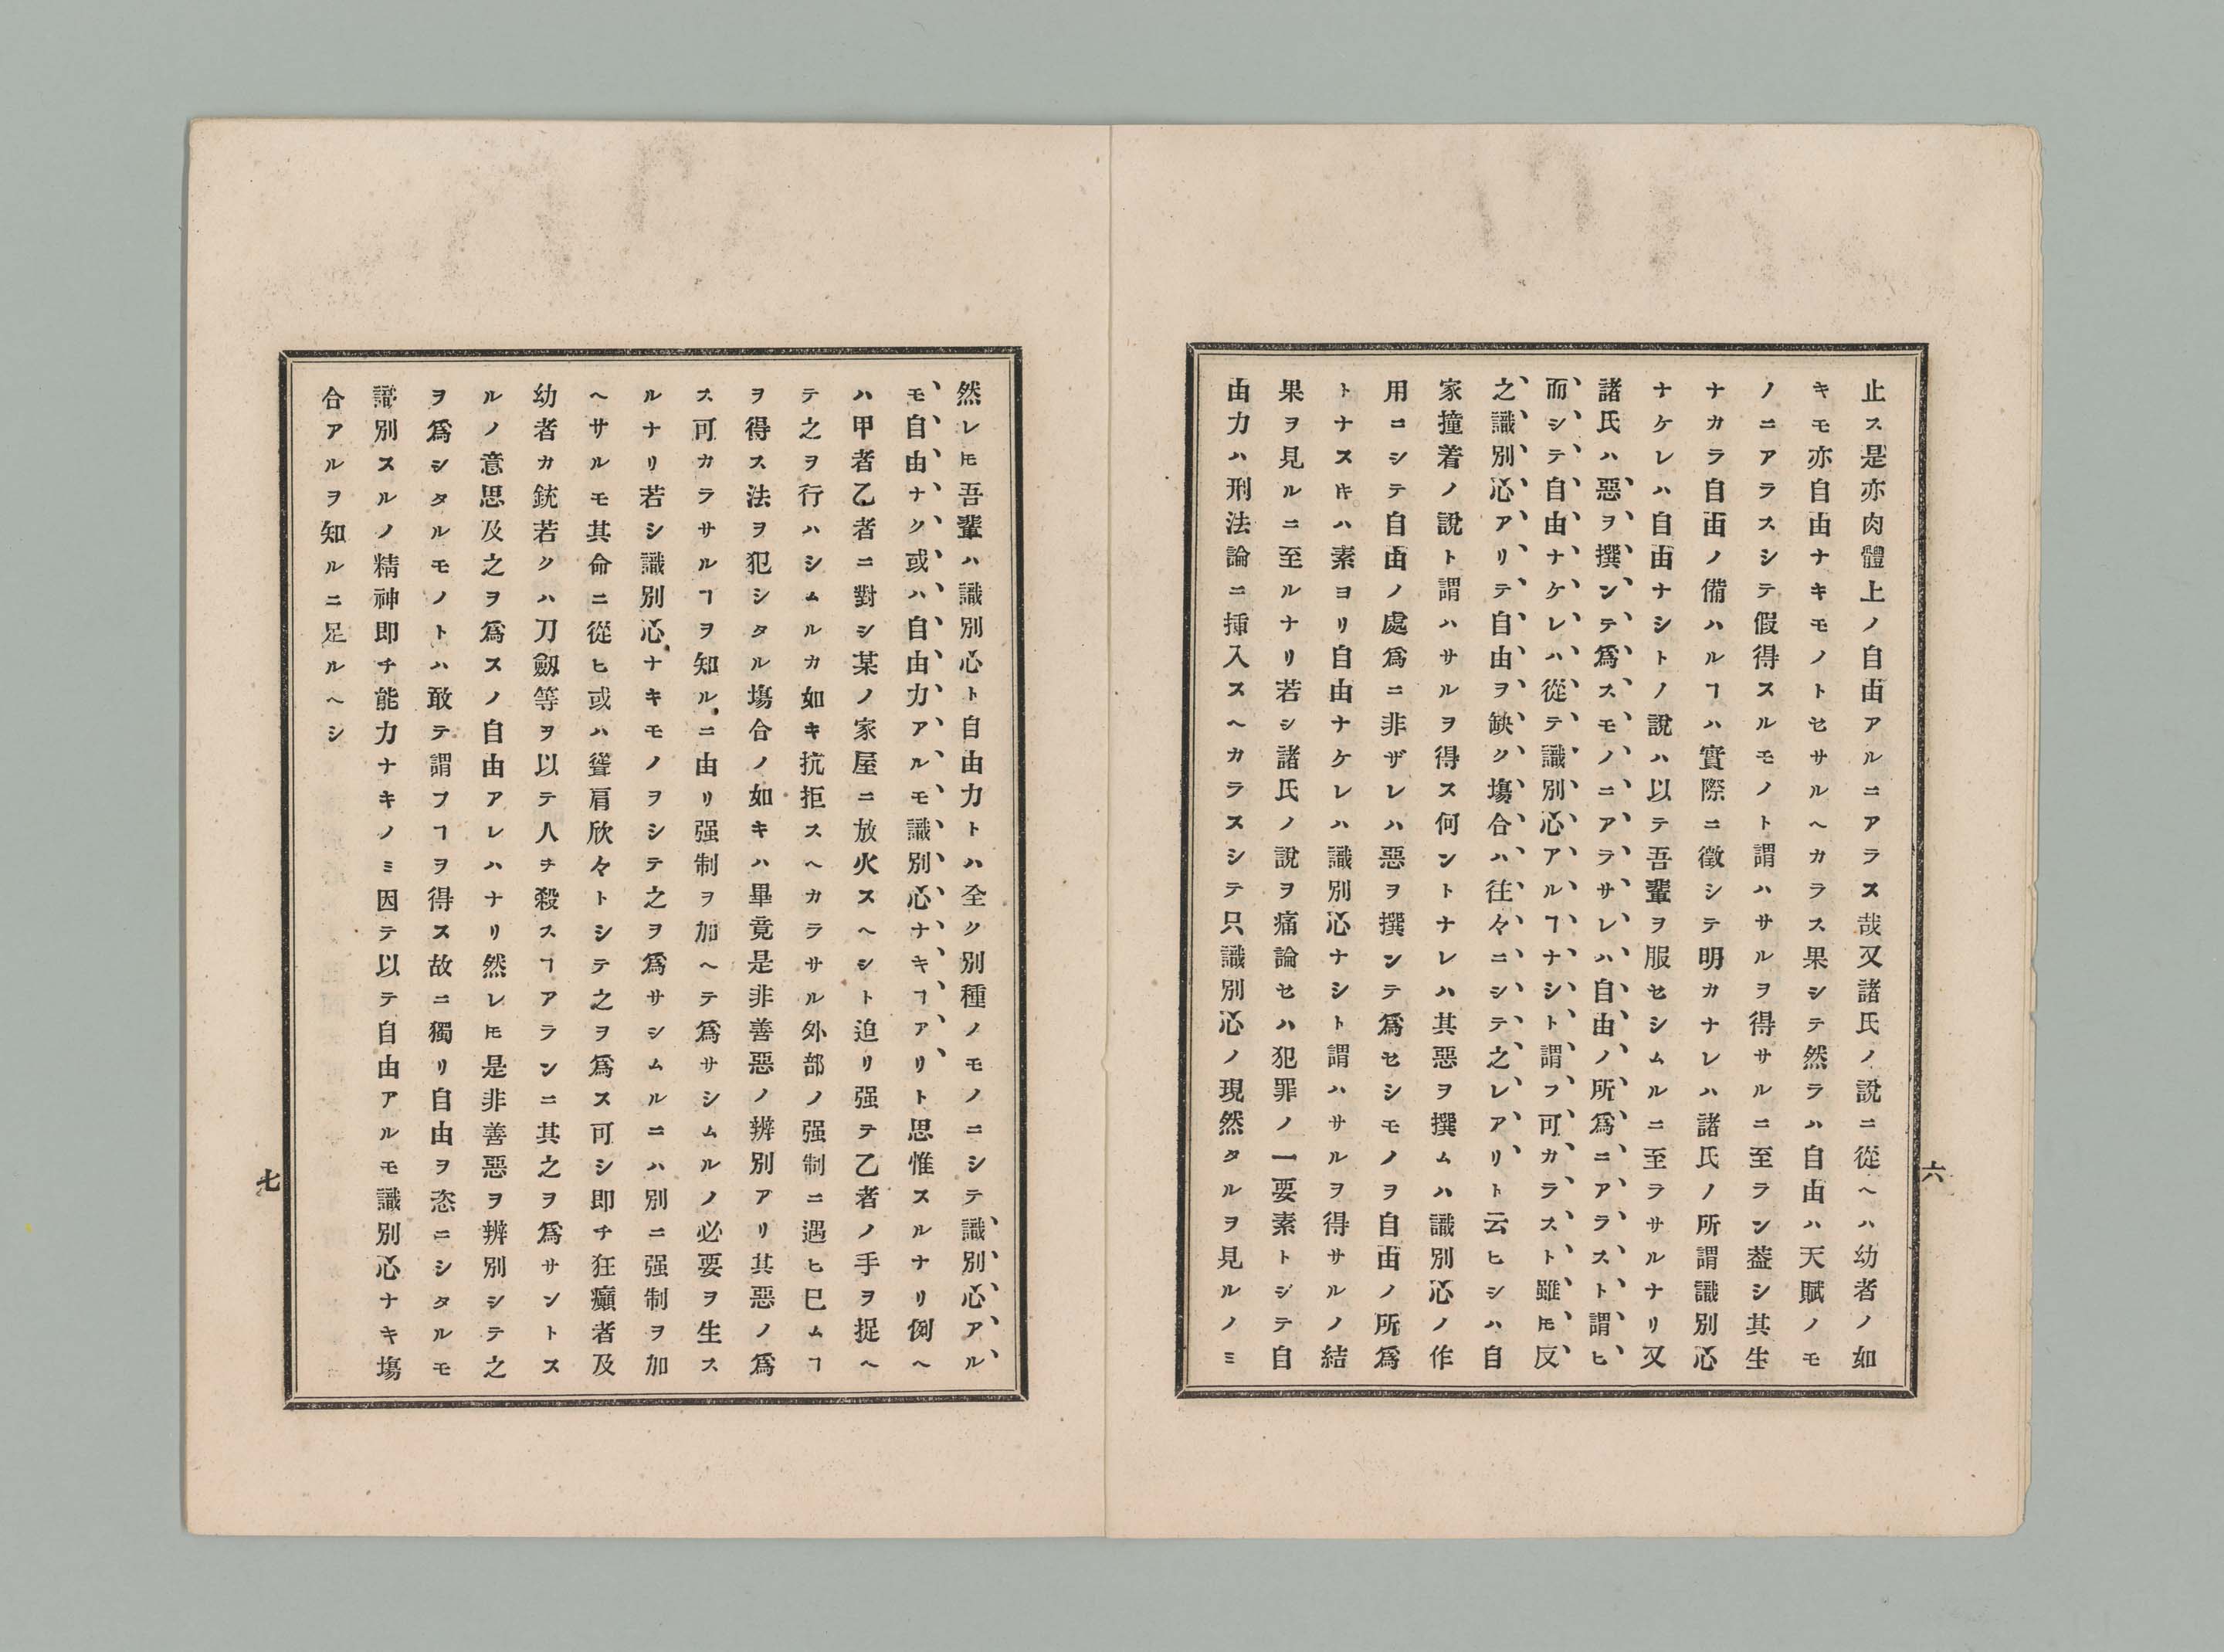 止ス是亦肉體上ノ自由アルニアラス哉又諸氏ノ說ニ從ヘハ幼者ノ如
キモ亦自由ナキモノトセサルヘカラス果シテ然ラハ自由ハ天賦ノモ
ノニアラスシテ假得スルモノト謂ハサルヲ得サルニ至ラン蓋シ其生
ナカラ自由ノ備ハルヿハ實際ニ徵シテ明カナレハ諸氏ノ所謂識別心
ナケレハ自由ナシトノ說ハ以テ吾輩ヲ服セシムルニ至ラサルナリ又
諸氏ハ惡ヲ撰ンテ爲スモノニアラサレハ自由ノ所爲ニアラスト謂ヒ
而シテ自由ナケレハ從テ識別心アルヿナシト謂フ可カラスト雖𪜈反
之識別心アリテ自由ヲ缺ク塲合ハ往々ニシテ之レアリト云ヒシハ自
家撞着ノ說ト謂ハサルヲ得ス何ントナレハ其惡ヲ撰ムハ識別心ノ作
用ニシテ自由ノ處爲ニ非ザレハ惡ヲ撰ンテ爲セシモノヲ自由ノ所爲
トナス𬼀ハ素ヨリ自由ナケレハ識別心ナシト謂ハサルヲ得サルノ結
果ヲ見ルニ至ルナリ若シ諸氏ノ說ヲ痛論セハ犯罪ノ一要素トシテ自
由力ハ刑法論ニ揷入スヘカラスシテ只識別心ノ現然タルヲ見ルノミ
六
然レ𪜈吾輩ハ識別心ト自由力トハ全ク別種ノモノニシテ識別心アル
モ自由ナク或ハ自由力アルモ識別心ナキヿアリト思惟スルナリ例ヘ
ハ甲者乙者ニ對シ某ノ家屋ニ放火スヘシト迫リ强テ乙者ノ手ヲ捉ヘ
テ之ヲ行ハシムルカ如キ抗拒スヘカラサル外部ノ强制ニ遇ヒ已ムヿ
ヲ得ス法ヲ犯シタル塲合ノ如キハ畢竟是非善惡ノ辨別アリ其惡ノ爲
ス可カラサルヿヲ知ルニ由リ强制ヲ加ヘテ爲サシムルノ必要ヲ生ス
ルナリ若シ識別心ナキモノヲシテ之ヲ爲サシムルニハ別ニ强制ヲ加
ヘサルモ其命ニ從ヒ或ハ聳肩欣々トシテ之ヲ爲ス可シ即チ狂癲者及
幼者カ銃若クハ刀劔等ヲ以テ人チ殺スヿアランニ其之ヲ爲サントス
ルノ意思及之ヲ爲スノ自由アレハナリ然レ𪜈是非善惡ヲ辨別シテ之
ヲ爲シタルモノトハ敢テ謂フヿヲ得ス故ニ獨リ自由ヲ恣ニシタルモ
識別スルノ精神即チ能力ナキノミ因テ以テ自由アルモ識別心ナキ塲
合アルヲ知ルニ足ルヘシ
七